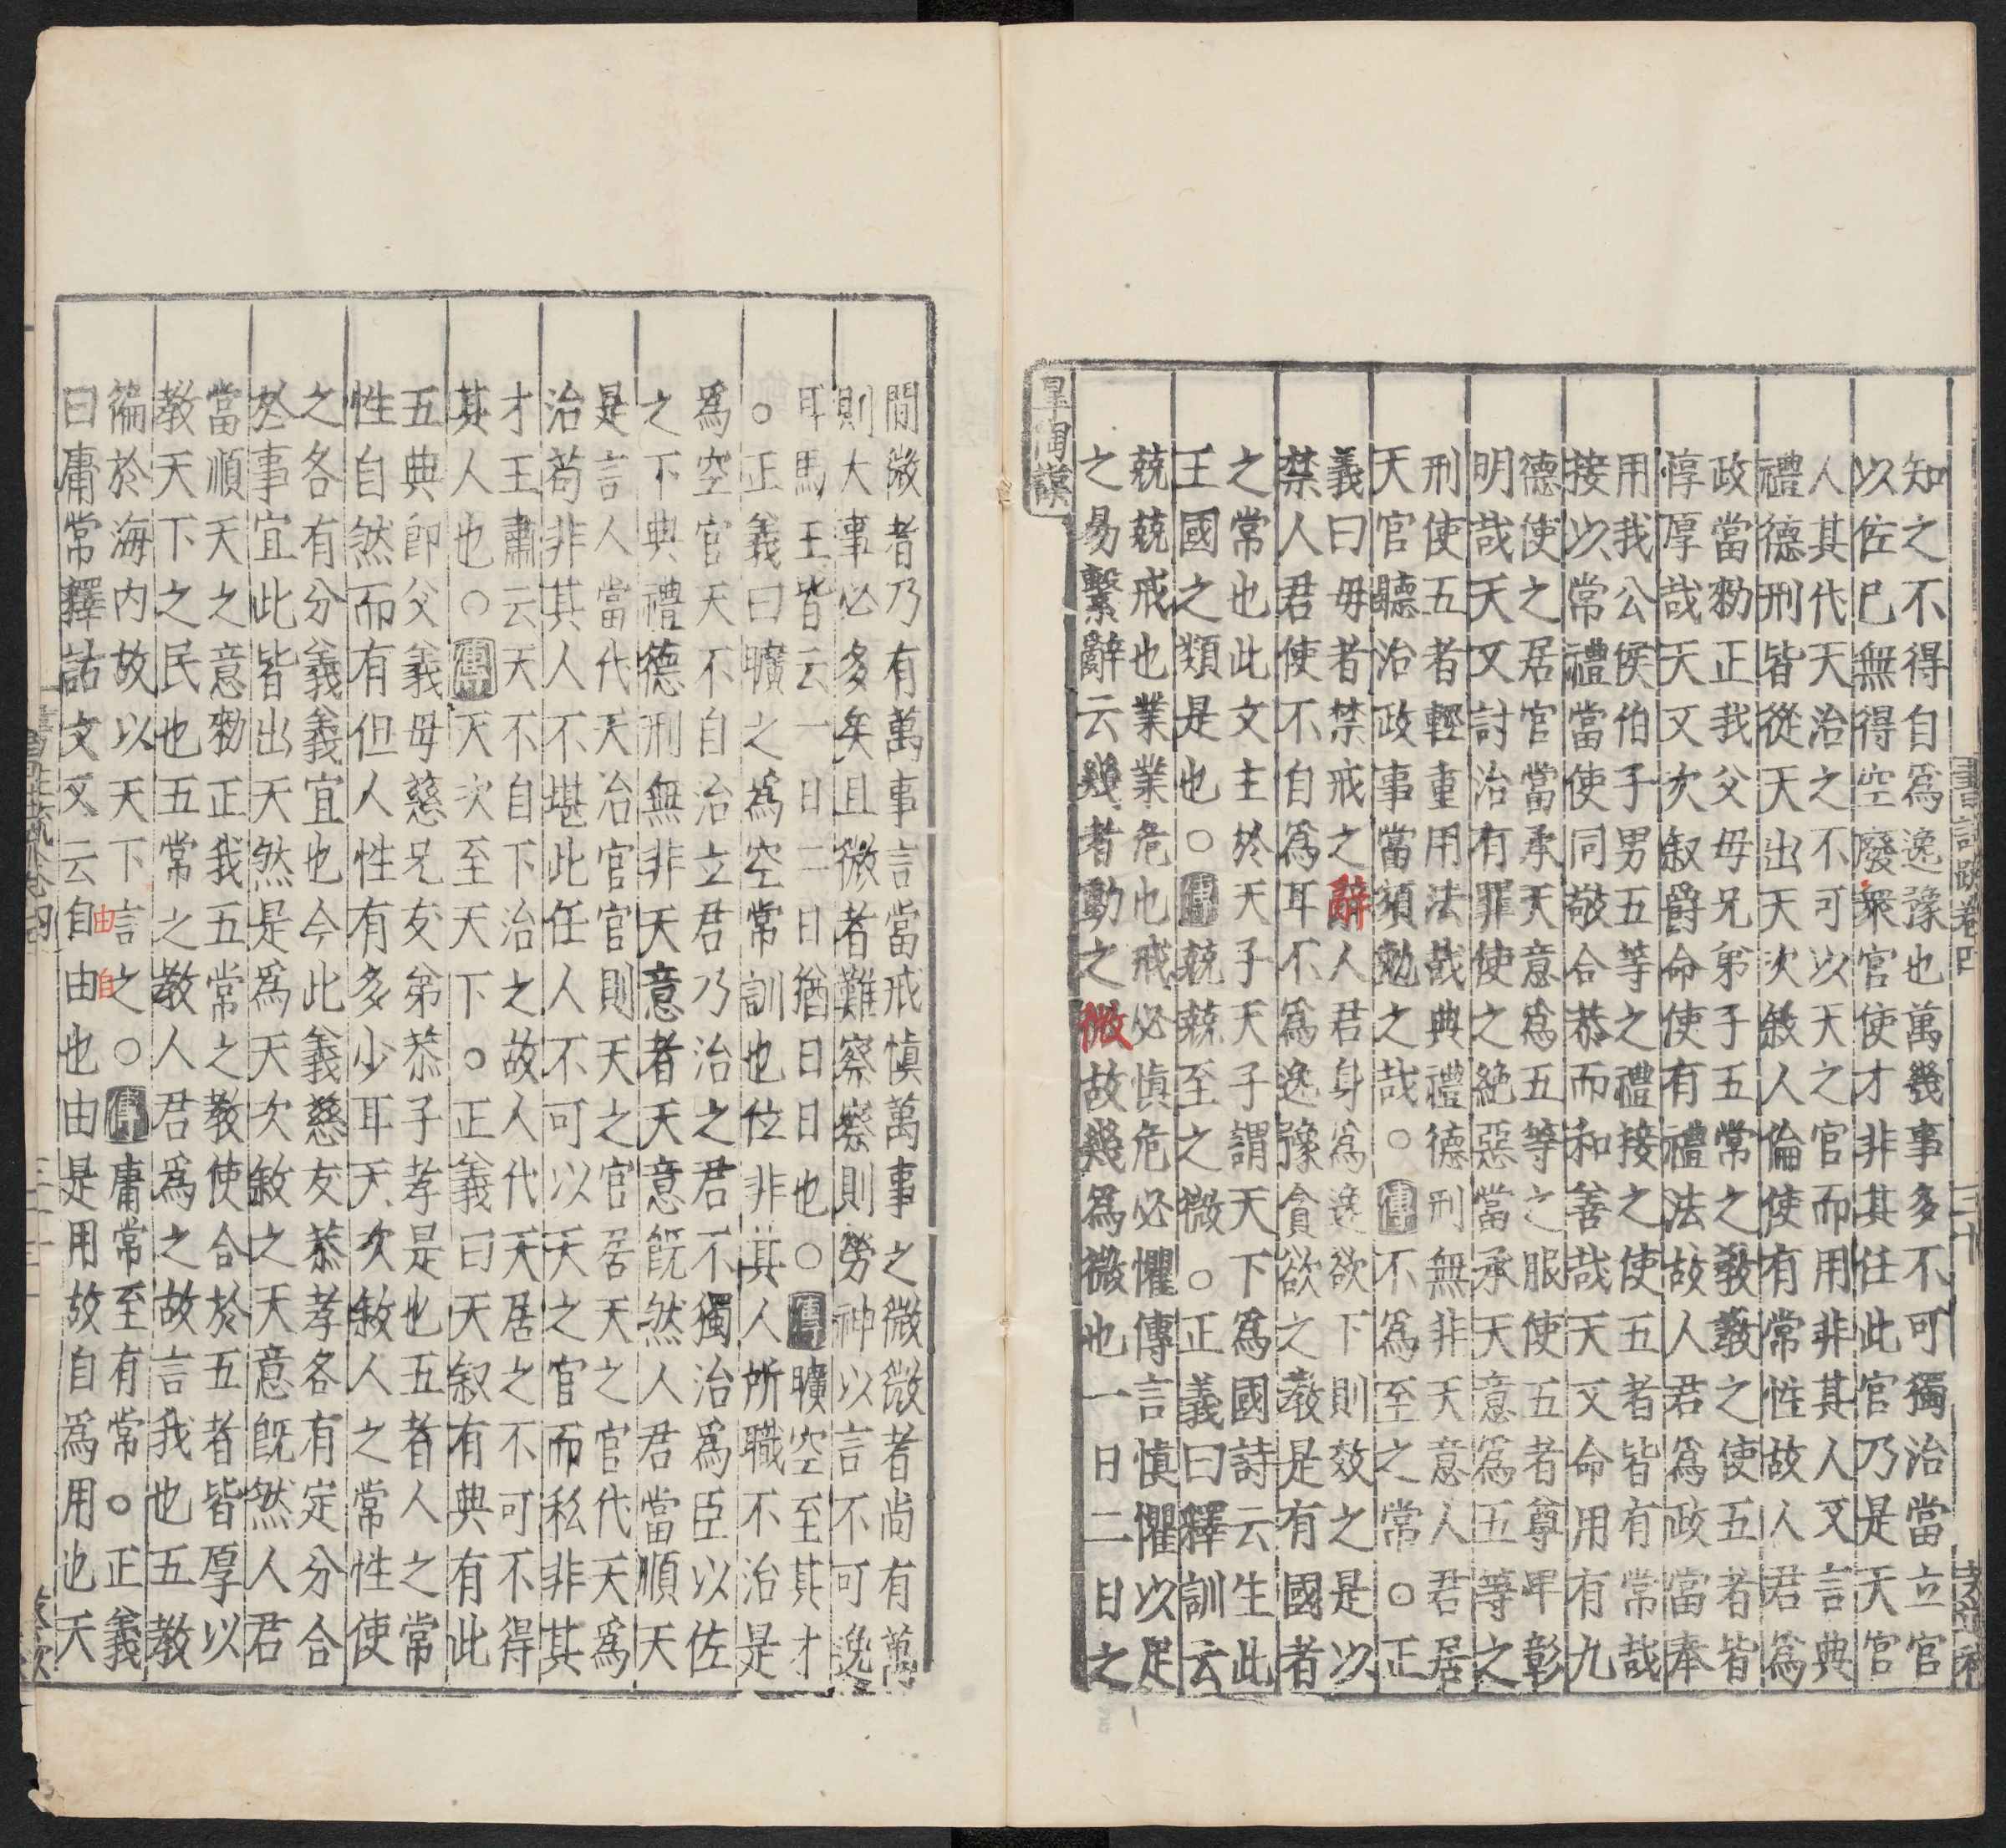 知之不得自爲逸豫也萬幾事多不可獨治當立官
以佐已無得空廢衆官使才非其任此官乃是天官
人其代天治之不可以天之官而用非其人又言典
禮德刑皆從天出天次敘人倫使有常性故人君爲
政當勑正我父母兄弟子五常之敎敎之使五者皆
惇厚哉天又次叙爵命使有禮法故人君爲政當奉
用我公侯伯子男五等之禮接之使五者皆有常哉
接以常禮當使同敬合恭而和善哉天又命用有九
德使之居官當承天意爲五等之服使五者尊卑彰
明哉天又討治有罪使之絶惡當承天意爲五等之
刑使五者輕重用法哉典禮德刑無非天意人君居
天官聽治政事當須勉之哉○傳不爲至之常○正
義曰毋者禁戒之辭人君身爲逸欲下則效之是以
禁人君使不自爲耳不爲逸豫貪欲之教是有國者
之常也此文主於天子天子謂天下爲國詩云生此
王國之類是也○傳兢兢至之微○正義曰釋訓云
兢兢戒也業業危也戒必慎危必懼傳言慎懼以足
之易繫辭云幾者動之微故幾爲微也一日二日之
皐陶謨
書註疏卷四
三十
間微者乃有萬事言當戒慎萬事之微微者尚有萬
則大事必多矣且微者難察察則勞神以言不可逸
耳馬王皆云一日二日猶日日也○傳曠空至其才
○正義曰曠之爲空常訓也位非其人所職不治是
爲空官天不自治立君乃治之君不獨治爲臣以佐
之下典禮德刑無非天意者天意既然人君當順天
是言人當代天治官官則天之官居天之官代天爲
治苟非其人不堪此任人不可以天之官而私非其
才王肅云天不自下治之故人代天居之不可不得
其人也○傳天次至天下○正義曰天叙有典有此
五典即父義母慈兄友弟恭子孝是也五者人之常
性自然而有但人性有多少耳天次敘人之常性使
之各有分義義宜也今此義慈友恭孝各有定分合
於事宜此皆出天然是爲天次敘之天意既然人君
當順天之意勑正我五常之教使合於五者皆厚以
教天下之民也五常之教人君爲之故言我也五教
徧於海内故以天下言之○傳庸常至有常○正義
曰庸常釋詁文又云自由也由是用故自爲用也天
由 自